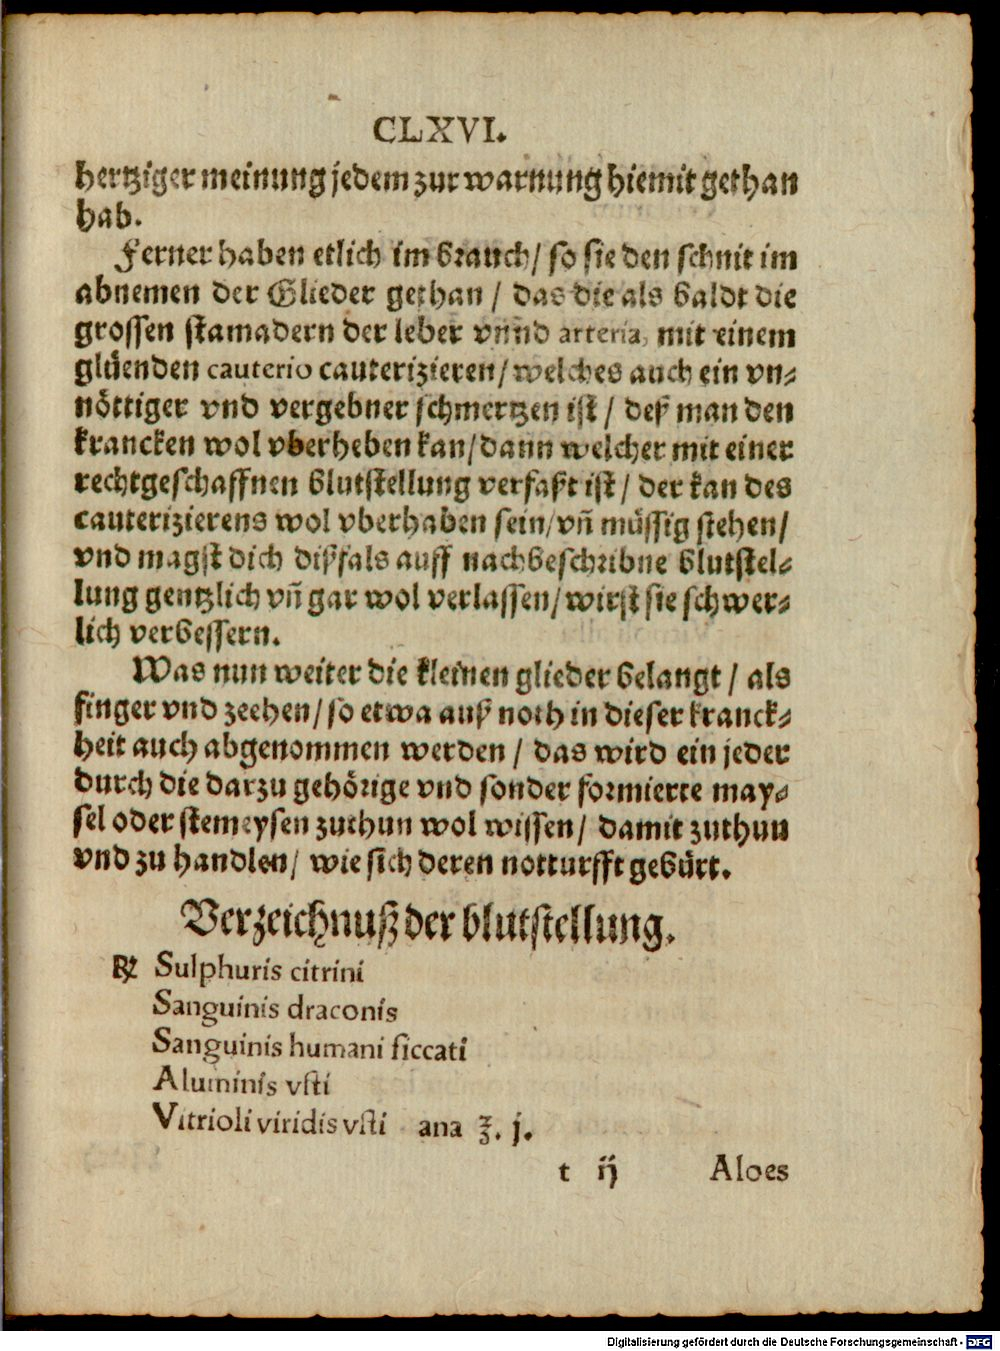 CLXVI.
hertziger meinung jedem zur warnung hiemit gethan
hab.
Ferner haben etlich im brauch / so sie den schnit im
abnemen der Glieder gethan / das die als baldt die
grossen stamadern der leber vnnd arteria, mit einem
glüenden cauterio cauterizieren / welches auch ein vn⸗
nöttiger vnd vergebner schmertzen ist / deß man den
krancken wol vberheben kan / dann welcher mit einer
rechtgeschaffnen blutstellung verfaßt ist / der kan des
cauterizierens wol vberhaben sein / vñ müssig stehen /
vnd magst dich dißfals auff nachbeschribne blutstel⸗
lung gentzlich vñ gar wol verlassen / wirst sie schwer⸗
lich verbessern.
Was nun weiter die kleinen glieder belangt / als
finger vnd zeehen / so etwa auß noth in dieser kranck⸗
heit auch abgenommen werden / das wird ein jeder
durch die darzu gehörige vnd sonder formierte may⸗
sel oder stemeysen zuthun wol wissen / damit zuthun
vnd zu handlen / wie sich deren notturfft gebürt.
Verzeichnuß der blutstellung.
℞ Sulphuris citrini
Sanguinis draconis
Sanguinis humani siccati
Aluminis vsti
Vitrioli viridis vsti ana ℥. j.
t ij Aloes
Digitalisierung gefördert durch die Deutsche Forschungsgemeinschaft - DFG